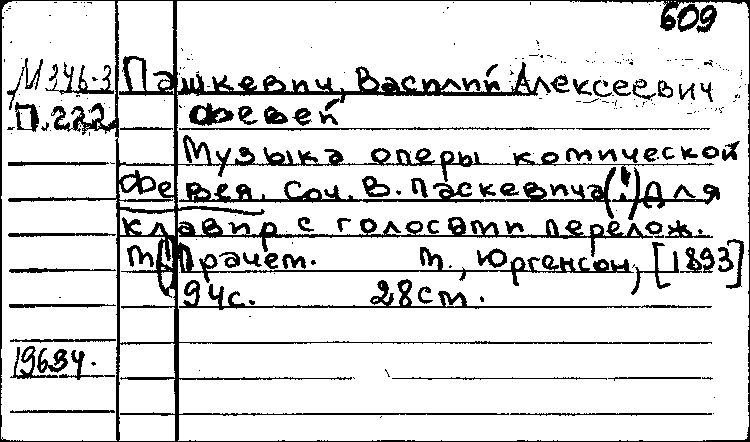 609
М346-3 Пашкевич, Василий Алексеевич
П.222 Февей
Музыка оперы комической
Февея. Соч. В. Паскевича (!) Для
клавир с голосами перелож.
М(!) Прачем. М., Юргенсон, [1893]
94с. 28см.
19634.